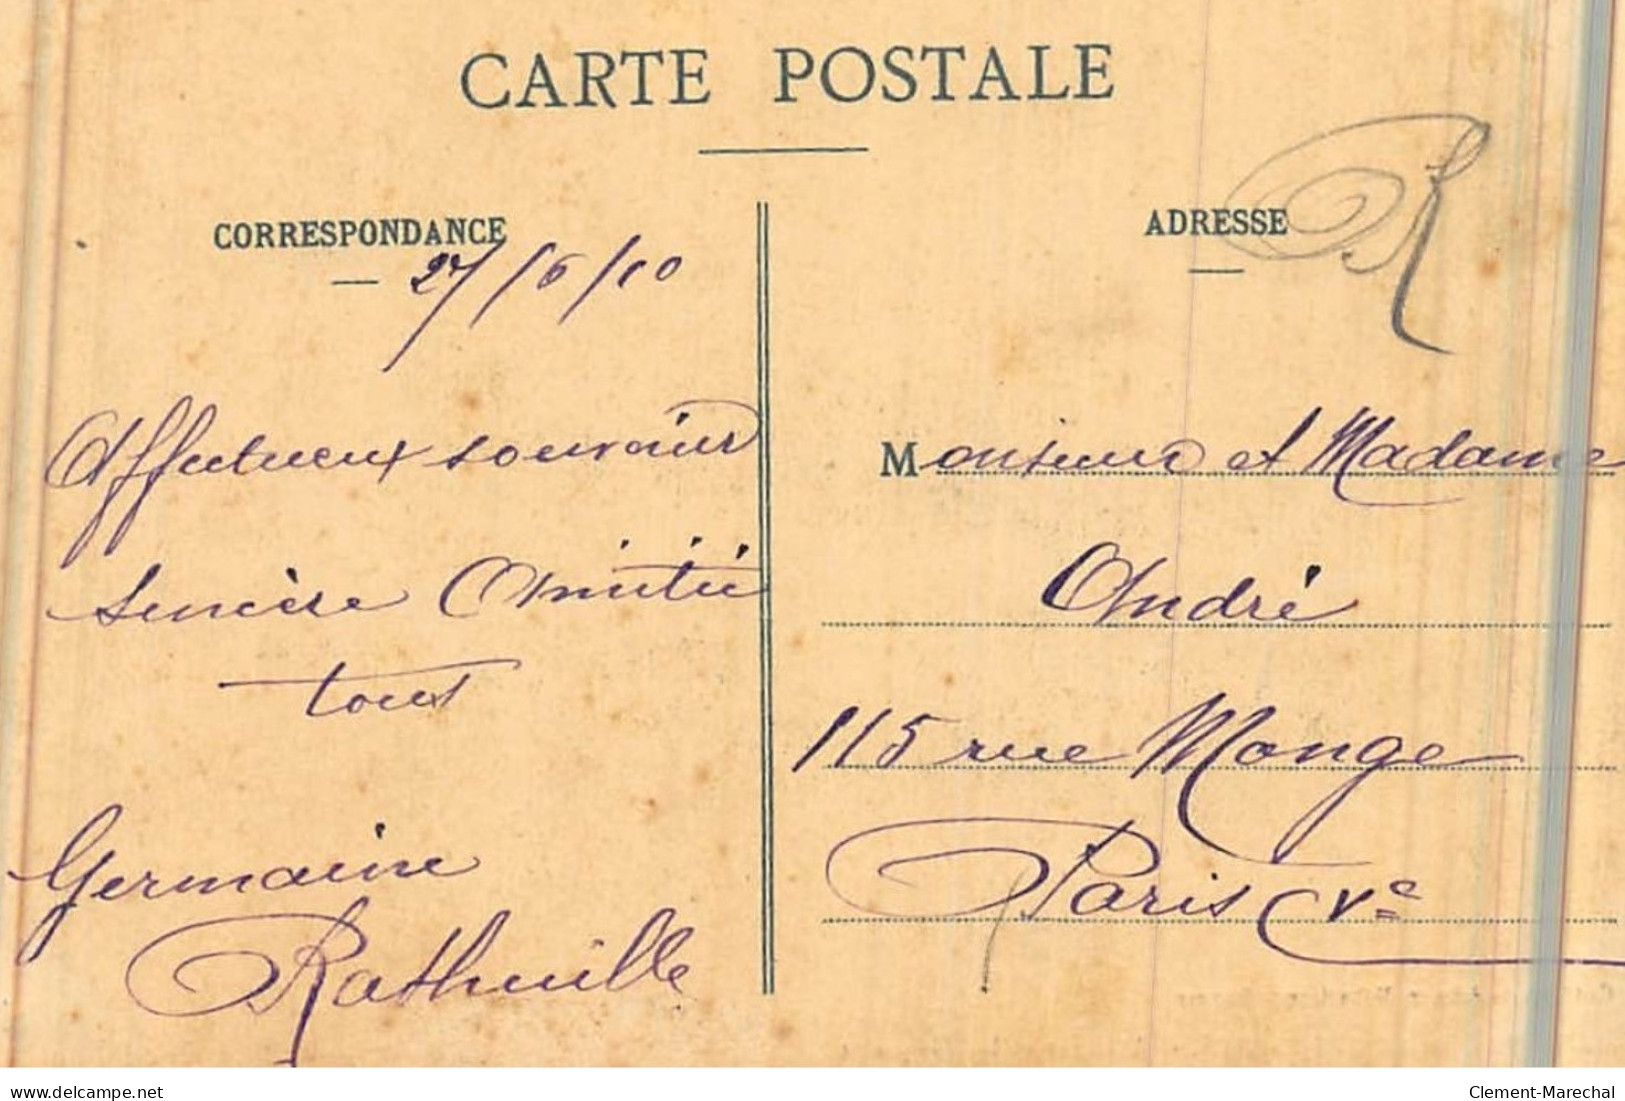 CARTE POSTALE
CORRESPONDANCE
27/6/10
Affectueux souvenirs
sincère Amitié
tous
Germaine
Rathuille
ADRESSE
R
Monsieur et Madame
André
115 rue Monge
Paris Ve
delcampe.net
Clement-Marechal